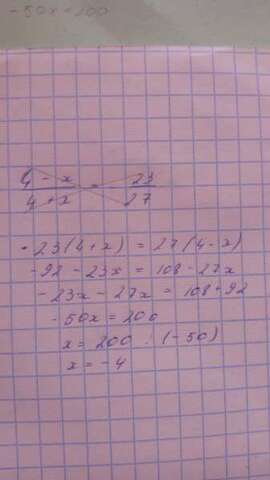 -50x=100
4 - x / 4 + x = 23 / 27
-23(4+x) = 27(4-x)
-92 - 23x = 108 - 27x
-23x - 27x = 108+92
-50x = 200
x = 200 : (-50)
x = -4